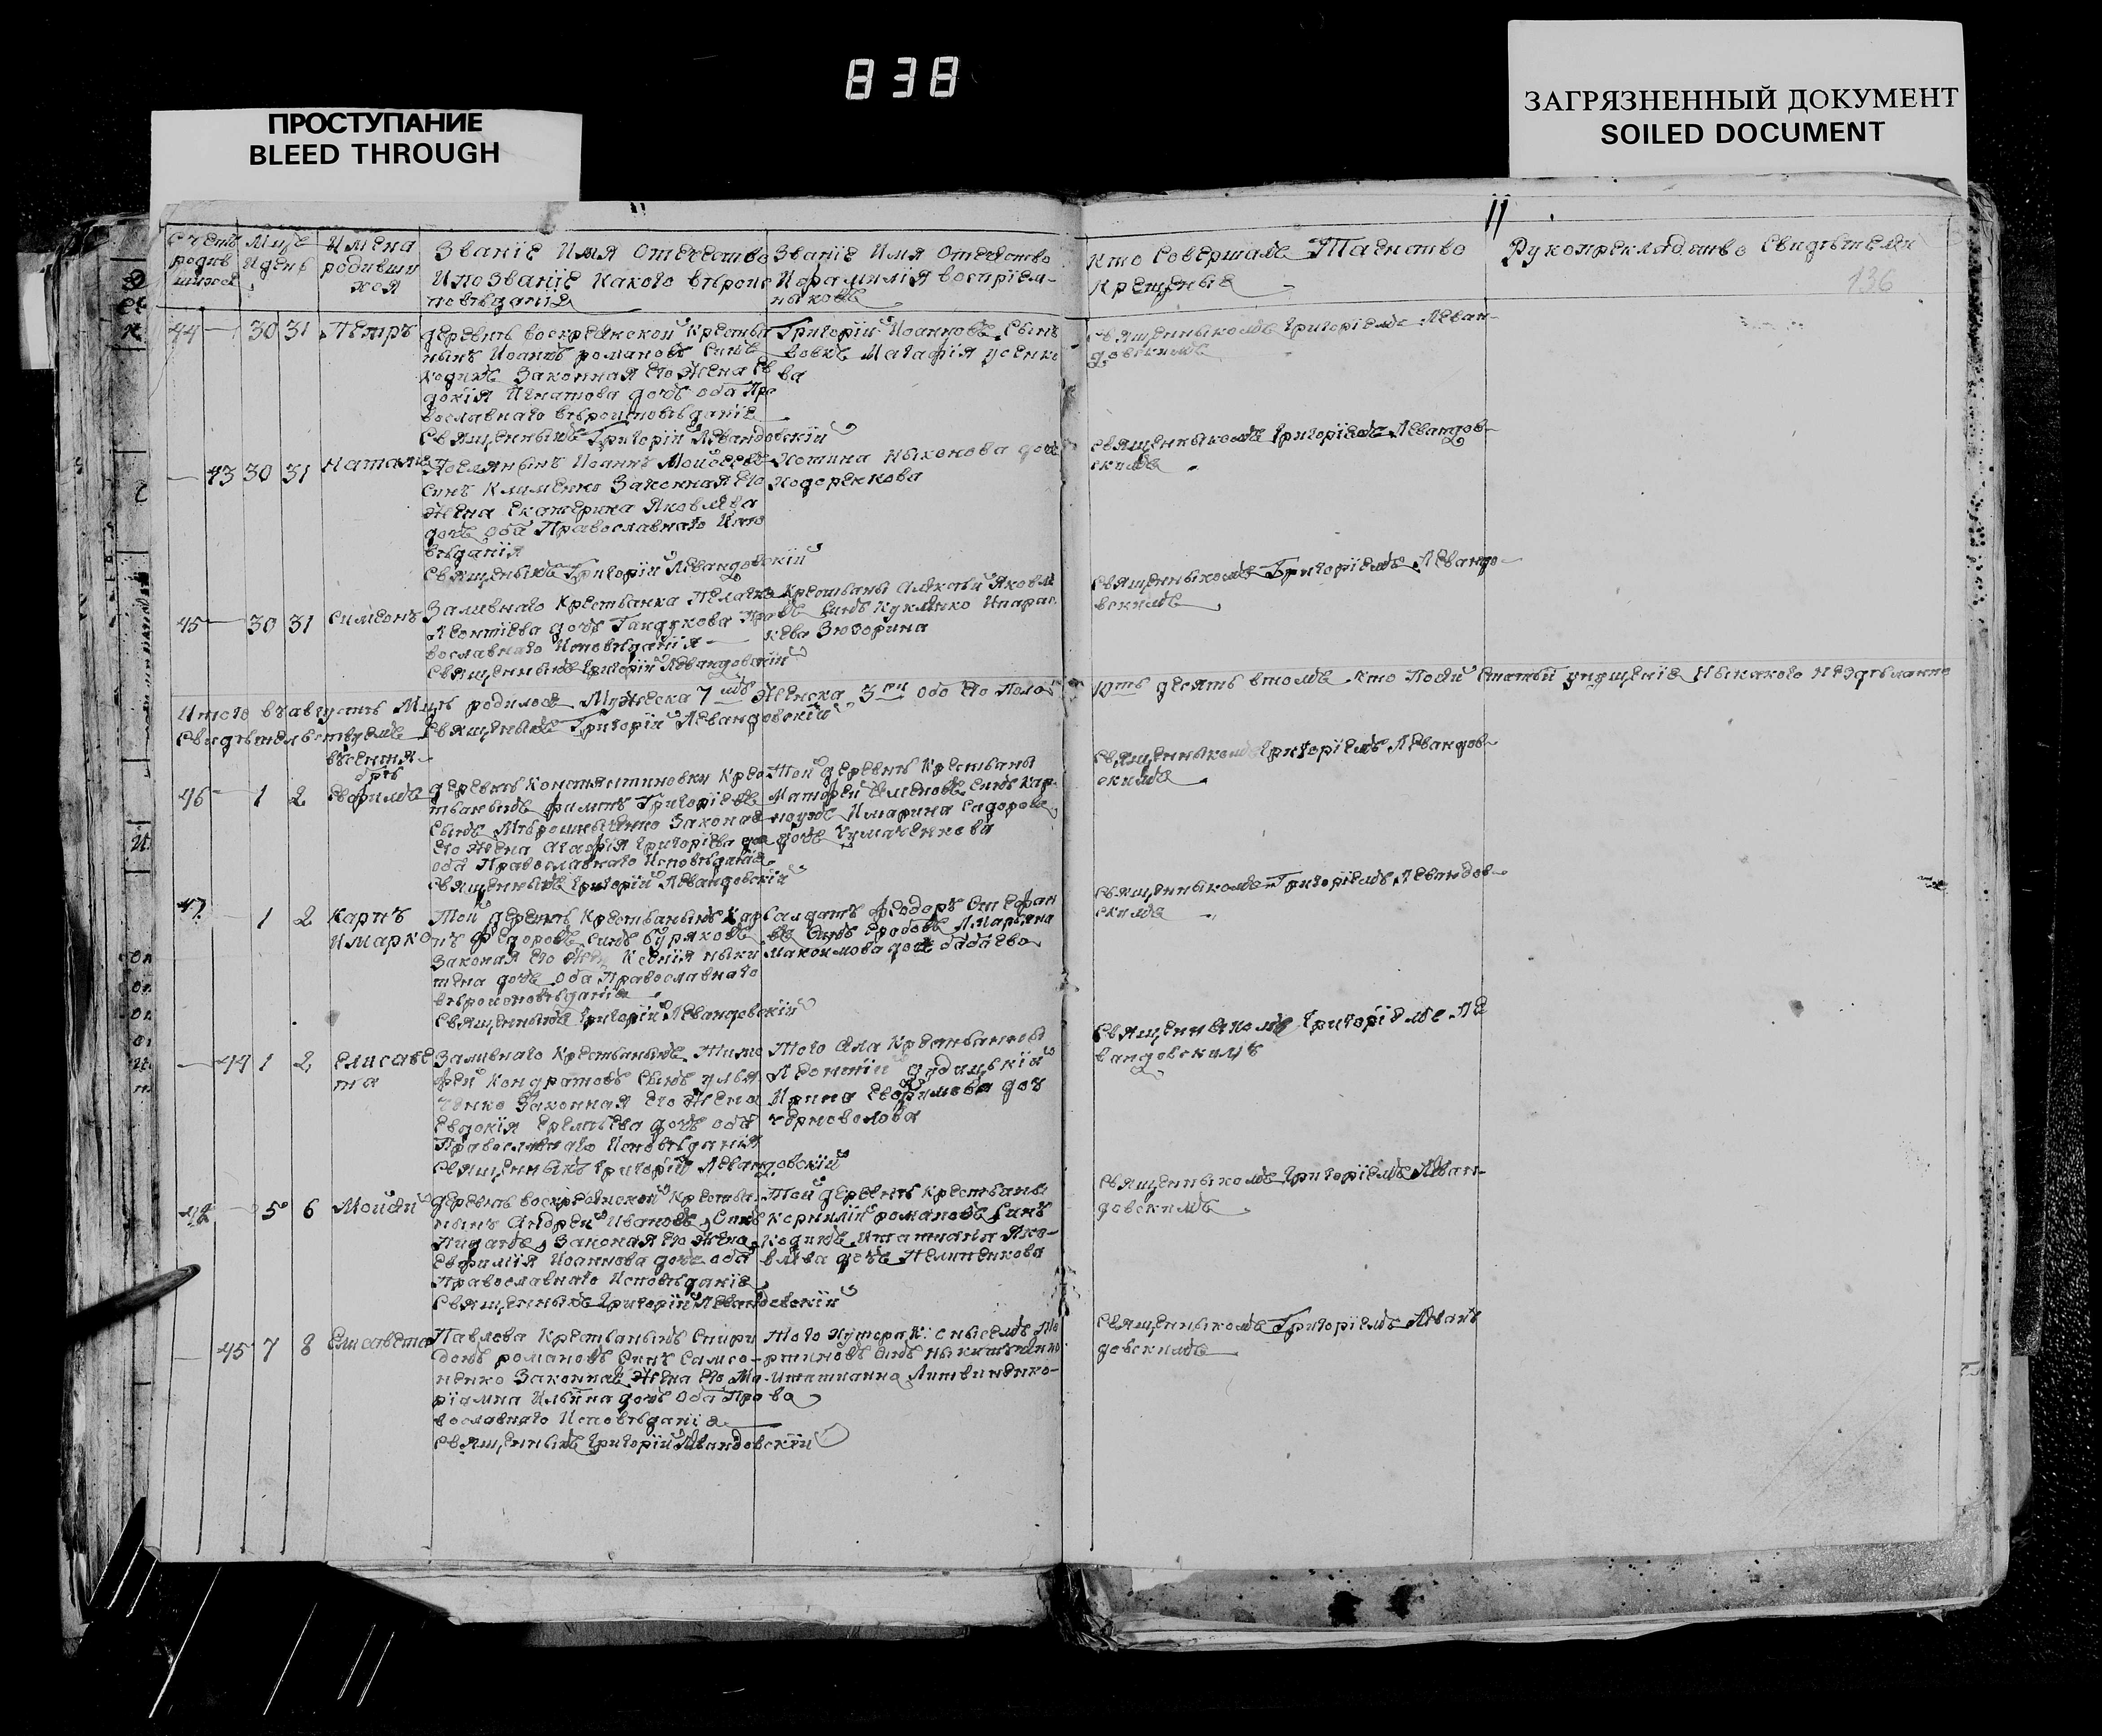 838
ПРОСТУПАНИЕ
BLEED THROUGH
ЗАГРЯЗНЕННЫЙ ДОКУМЕНТ
SOILED DOCUMENT
11
136
Счетъ родив
Мцъ И день
Имена родивши хся
Званіе Имя Отечество
Ипозваніе Какого вѣроис
повѣданія
Званіе Имя Отечество
Ифамилія воспріем-
никовъ
Кто Совершалъ Таенство
Крещеніе
Рукоприкладство Свидѣтелей
44 — 30 31 Петръ
деревнѣ воскресенской Крестья
нинъ Иоаннъ романовъ Синъ
Законная Его Жена Ев
докія Игнатова дочъ оба Пра
вославнаго вѣроисповѣданіе
Священникъ Григорій Левандовскій
Григорій Иоанновъ Сынъ
Священникомъ Григоріемъ Леван-
довскимъ
— 43 30 31 Наталія
Поселянинъ Иоаннъ Мойсеевъ
Синъ Клименко Законная Его
Жена Екатерина Яковлева
дочъ оба Православнаго Испо
вѣданія
Священникъ Григорій Левандовскій
Ходоренкова
Священникомъ Григоріемъ Левандов-
скимъ
45 — 30 31 Симеонъ
Заливнаго Крестьянка Пелагія
Леонтіева дочъ Гандукова Пра
вославнаго Исповѣданія
Священникъ Григорій Левандовскій
Крестьяны Алексѣй Яковле
въ Синъ Куклѣнко Ипарас
кева Зюзорина
Священникомъ Григоріемъ Левандо-
вскимъ
Итого въ августѣ Мцѣ родилось Мужеска 7 Женска 3 обоего Пола
десять втомъ что Посей Статьи упущеніе Никакого Нездѣланно
Свидѣтельствуемъ Священникъ Григорій Левандовскій
Всентя-
брѣ
46 — 1 2 Евфимъ
деревнѣ Константиновки Крес
тьянинъ филипъ Григоріевъ
Сынъ Мѣрошниченко Законая
Его Жена Агафія Григоріева дочъ
оба Православнаго Исповѣданіе
Священникъ Григорій Левандовскій
Той деревнѣ Крестьяны
Матфей Семеновъ Синъ Кар
наухъ Имарина Сидорова
дочъ Чумаченкова
Священникомъ Григоріемъ Левандов-
скимъ
47 — 1 2 Карпъ
Имарко
Той деревнѣ Крестьянинъ Кар
пъ Федоровъ Синъ Буряковъ
Законая Его Жена Ксенія Ники
тина дочъ Оба Православнаго
вѣроисповѣданіе
Священникъ Григорій Левандовскій
Салдатъ Феодоръ Стефан
въ Синъ
Максимова дочъ Бабаева
Священникомъ Григоріемъ Левандов-
скимъ
— 44 1 2 Елисаве
та
Заливнаго Крестьянинъ Тимо
фей Кондратовъ Сынъ ульян
ченко Законная Его Жена
Евдокія Еремѣева дочъ оба
Православнаго Исповѣданія
Священникъ Григорій Левандовскій
Того Села Крестьянины
Леонтій дудицькій
Ирина Евфимова доч
Черноволова
Священникомъ Григоріемъ Ле
вандовскимъ
48 — 5 6 Мойсей
деревнѣ воскресенской Крестья
нинъ Андрей Ивановъ Синъ
Пидагъ, Законая Его Жена
Евфимія Иоаннова дочъ оба
Православнаго Исповѣданіе
Священникъ Григорій Левандовскій
Той деревнѣ Крестьяны
Корнилій романовъ Синъ
Итатиана Яко-
влева дочъ Пелипенкова
Священникомъ Григоріемъ Леван-
довскимъ
— 45 7 8 Елисавета
Павлова Крестьянинъ Спири
донъ романовъ Синъ Самсо-
ненко Законная Жена Его Ма-
ріамна Ильина дочъ Оба Пра
вославнаго Исповѣданія
Священникъ Григорій Левандовскій
Того Хутора
Итатианна Литвиненко-
ва
Священникомъ Григоріемъ Леван
довскимъ